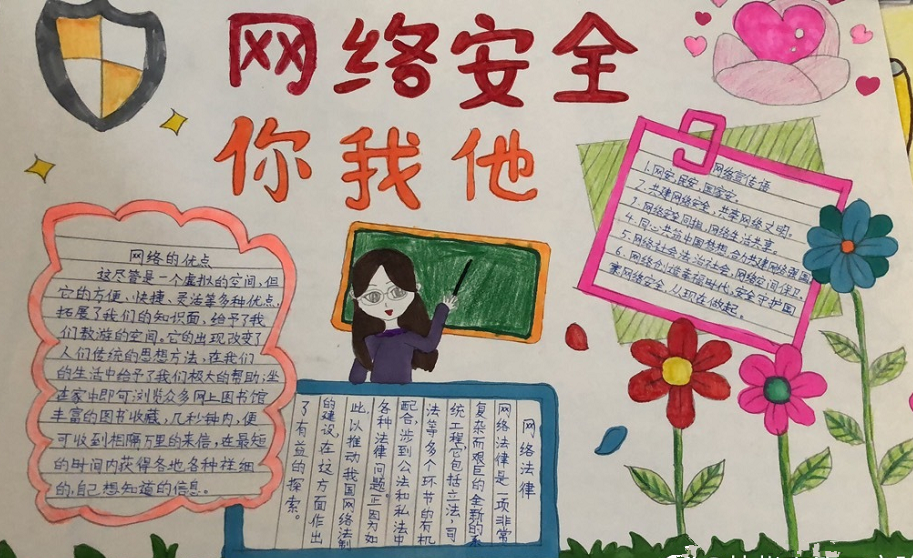 网络安全
你我他
网络的优点
这尽管是一个虚拟的空间,但
它的方便、快捷、灵活等多种优点,
拓展了我们的知识面,给予了我
们敖游的空间。它的出现改变了
人们传统的思想方法,在我们
的生活中给予了我们极大的帮助;坐
在家中即可浏览众多网上图书馆
丰富的图书收藏,几秒钟内,便
可收到相隔万里的来信,在最短
的时间内获得各地各种祥细
的,自己想知道的信息。
网络宣传语
1.网安,民安,国家安。
2.共建网络安全,共享网络文明。
3.网络安全同担,网络生活共享。
4.同心共筑中国梦想,合力共建网络强国
5.网络社会法治社会,网络空间保卫。
6.网络创造幸福时代,安全守护国
家网络安全,从现在做起。
网络法律
网络法律是一项非常
复杂而艰巨的全新的系
统工程,它包括立法,司
法等多个环节的有机
配合,涉到公法和私法中
各种法律问题。正因为如
此,以推动我国网络法制
的建设,在这方面作出
了有益的探索。